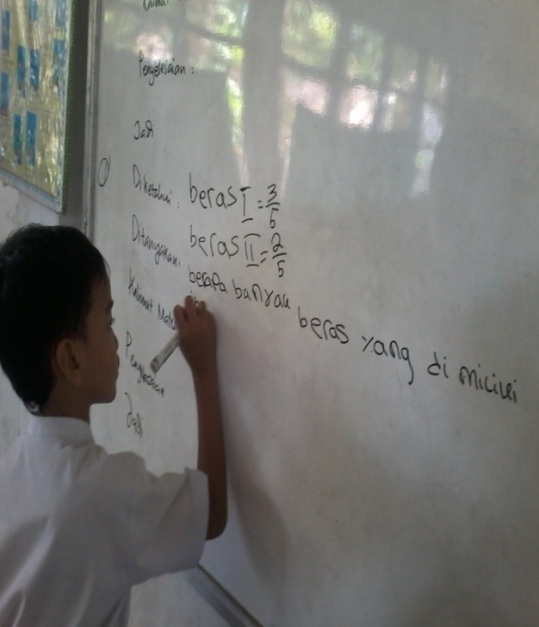 Penyelesaian :
Jadi
Diketahui : beras I = 3/5
beras II = 2/5
Ditanyakan : berapa banyak beras yang di miciki
Kalimat Mate
Penyelesaian
Jadi